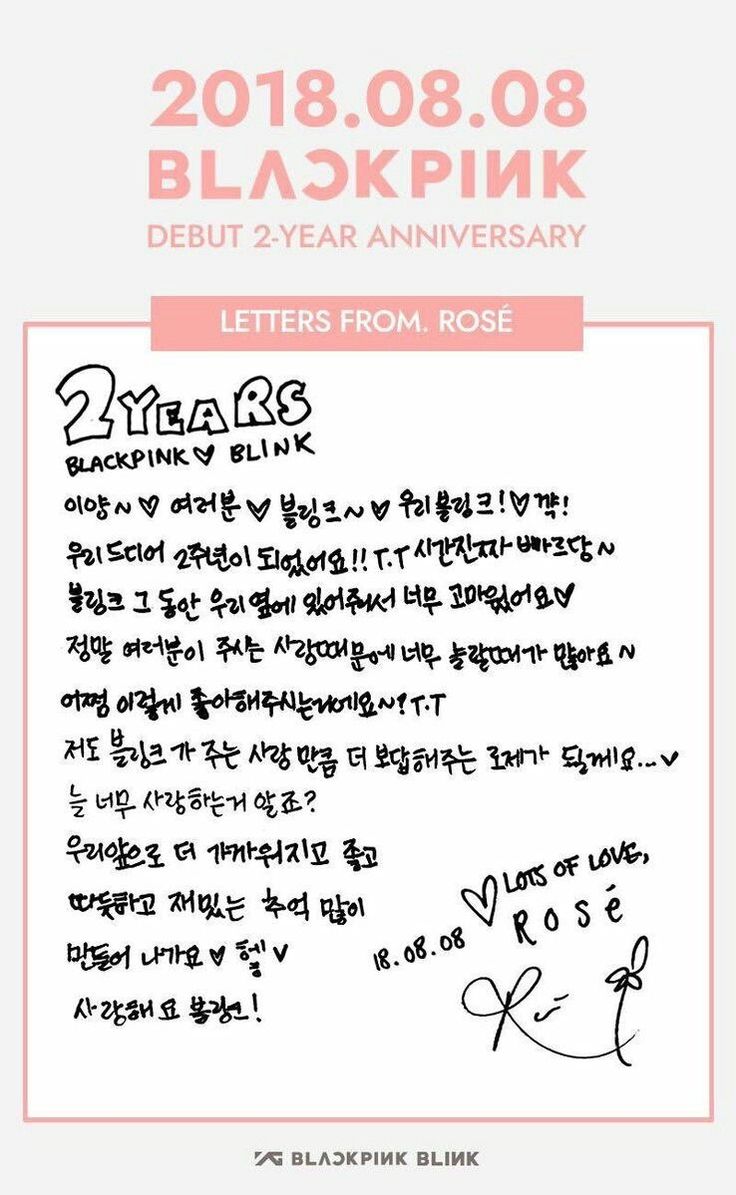 2018.08.08
BLACKPINK
DEBUT 2-YEAR ANNIVERSARY
LETTERS FROM. ROSÉ
2 YEARS
BLACKPINK ♡ BLINK
이양~♡ 여러분♡ 블링크~♡ 우리블링크!♡ 꺅!
우리드디어 2주년이 되었어요!! T.T 시간진짜 빠르당~
블링크 그 동안 우리옆에 있어줘서 너무 고마웠어요♡
정말 여러분이 주시는 사랑때문에 너무 놀랄때가 많아요~
어쩜 이렇게 좋아해주시는거에요~? T.T
저도 블링크가 주는 사랑만큼 더 보답해주는 로제가 될게요...♡
늘 너무 사랑하는거 알죠?
우리앞으로 더 가까워지고 좋고
따듯하고 재밌는 추억 많이
만들어 나가요♡ 헿♡
사랑해요 블링크!
♡ LOTS OF LOVE,
ROSÉ
18.08.08
YG BLACKPINK BLINK